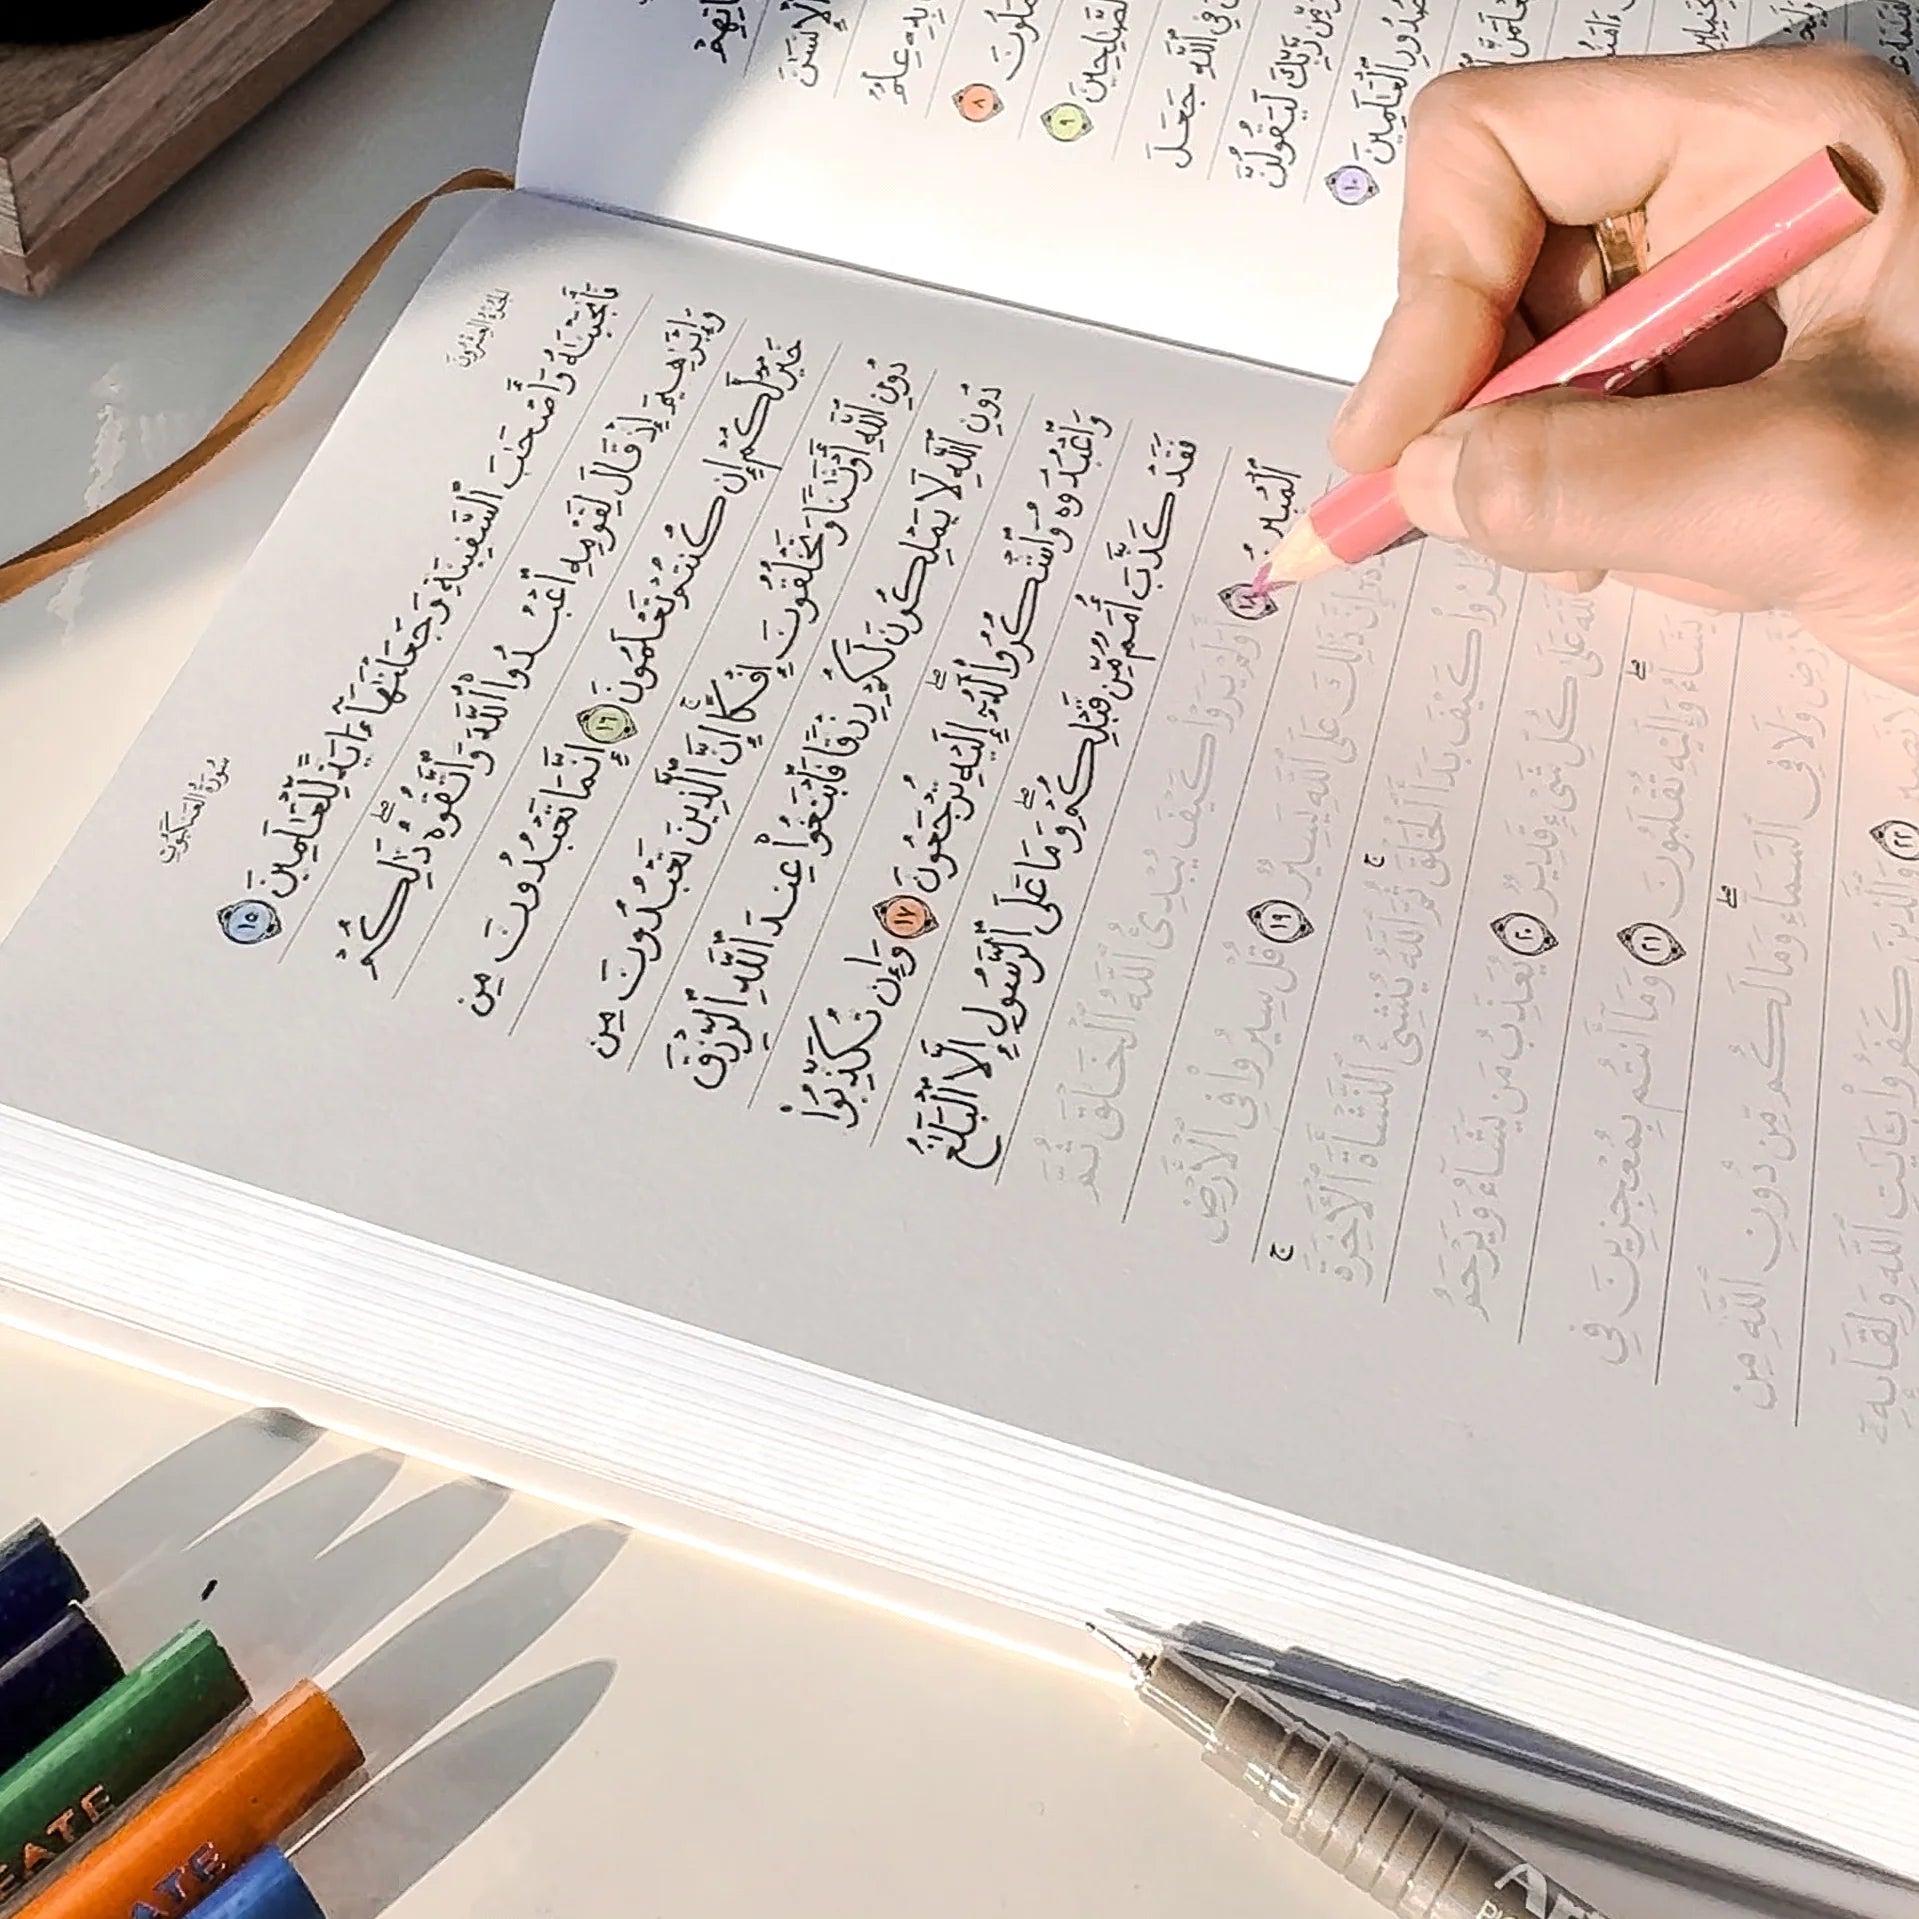 ٱلْإِنسَٰنَ
بِهِۦ عِلْمٌ
٨
ٱلصَّٰلِحِينَ ٩
فِى ٱللَّهِ جَعَلَ
مِّن رَّبِّكَ لَيَقُولُنَّ
صُدُورِ ٱلْعَٰلَمِينَ ١٠
ٱلْجُزْءُ ٱلْعِشْرُونَ
سُورَةُ ٱلْعَنكَبُوتِ
فَأَنجَيْنَٰهُ وَأَصْحَٰبَ ٱلسَّفِينَةِ وَجَعَلْنَٰهَآ ءَايَةً لِّلْعَٰلَمِينَ ١٥
وَإِبْرَٰهِيمَ إِذْ قَالَ لِقَوْمِهِ ٱعْبُدُوا۟ ٱللَّهَ وَٱتَّقُوهُ ۖ ذَٰلِكُمْ
خَيْرٌ لَّكُمْ إِن كُنتُمْ تَعْلَمُونَ ١٦ إِنَّمَا تَعْبُدُونَ مِن
دُونِ ٱللَّهِ أَوْثَٰنًا وَتَخْلُقُونَ إِفْكًا ۚ إِنَّ ٱلَّذِينَ تَعْبُدُونَ مِن
دُونِ ٱللَّهِ لَا يَمْلِكُونَ لَكُمْ رِزْقًا فَٱبْتَغُوا۟ عِندَ ٱللَّهِ ٱلرِّزْقَ
وَٱعْبُدُوهُ وَٱشْكُرُوا۟ لَهُۥٓ ۖ إِلَيْهِ تُرْجَعُونَ ١٧ وَإِن تُكَذِّبُوا۟
فَقَدْ كَذَّبَ أُمَمٌ مِّن قَبْلِكُمْ ۖ وَمَا عَلَى ٱلرَّسُولِ إِلَّا ٱلْبَلَٰغُ
ٱلْمُبِينُ ١٨ أَوَلَمْ يَرَوْا۟ كَيْفَ يُبْدِئُ ٱللَّهُ ٱلْخَلْقَ ثُمَّ
إِنَّ ذَٰلِكَ عَلَى ٱللَّهِ يَسِيرٌ ١٩ قُلْ سِيرُوا۟ فِى ٱلْأَرْضِ
كَيْفَ بَدَأَ ٱلْخَلْقَ ۚ ثُمَّ ٱللَّهُ يُنشِئُ ٱلنَّشْأَةَ ٱلْءَاخِرَةَ ۚ
ٱللَّهَ عَلَىٰ كُلِّ شَىْءٍ قَدِيرٌ ٢٠ يُعَذِّبُ مَن يَشَآءُ وَيَرْحَمُ
يَشَآءُ ۖ وَإِلَيْهِ تُقْلَبُونَ ٢١ وَمَآ أَنتُم بِمُعْجِزِينَ فِى
ٱلْأَرْضِ وَلَا فِى ٱلسَّمَآءِ ۖ وَمَا لَكُم مِّن دُونِ ٱللَّهِ مِن
لَا نَصِيرٍ ٢٢ وَٱلَّذِينَ كَفَرُوا۟ بِـَٔايَٰتِ ٱللَّهِ وَلِقَآئِهِۦٓ